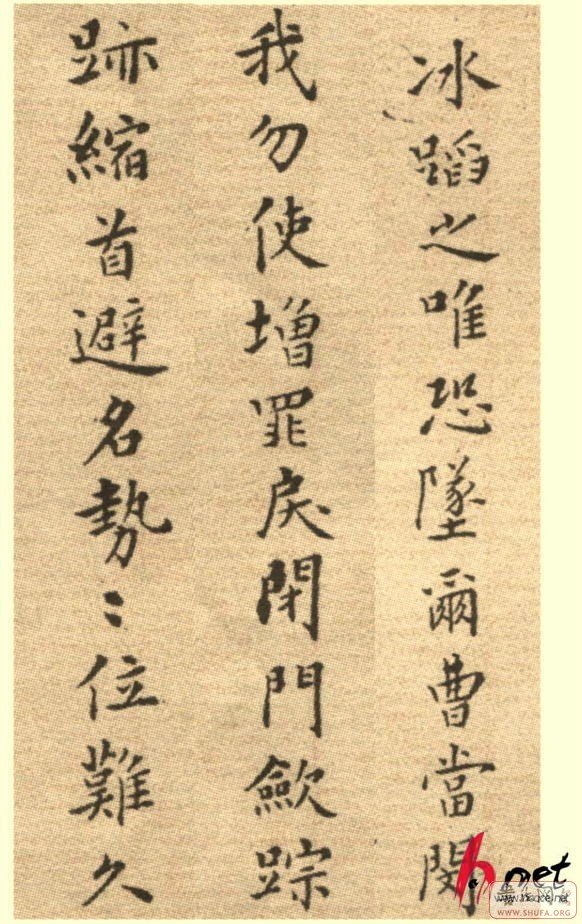 冰蹈之唯恐墜爾曹當閔
我勿使增罪戾閉門歛踪
跡縮首避名勢〻位難久
WWW.SHUFA.ORG